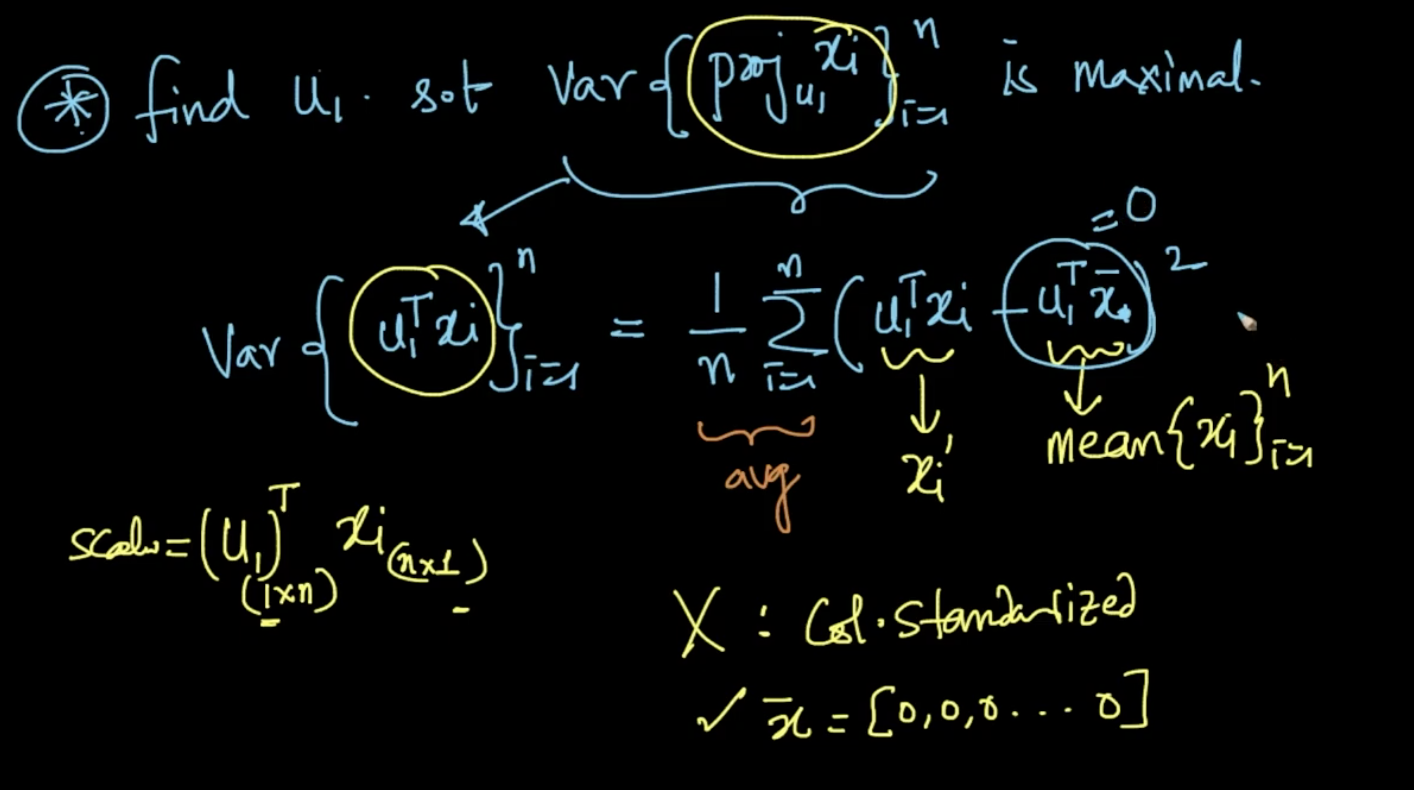 * find u₁ . s.t Var { proj_u₁ xi }ⁿ i=1 is maximal.
= 0
Var { u₁ᵀ xi }ⁿ i=1 = 1/n Σⁿ i=1 ( u₁ᵀ xi - u₁ᵀ x̄ )²
avg xi' mean{xi}ⁿ i=1
scalar = (u₁)ᵀ (1×n) xi (n×1)
X : Col. Standardized
✓ x̄ = [0,0,0 . . . 0]